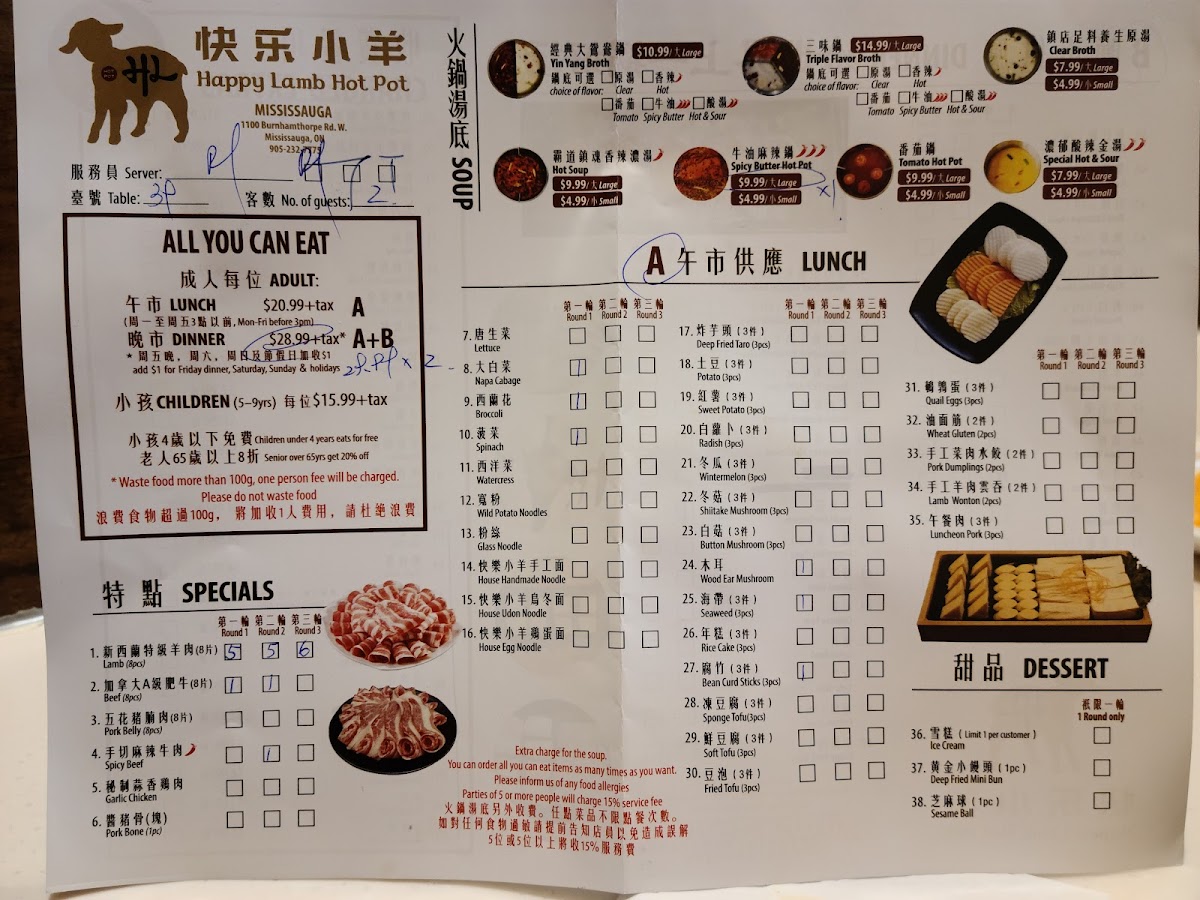 快乐小羊
Happy Lamb Hot Pot
MISSISSAUGA
1100 Burnhamthorpe Rd. W.
Mississauga, ON
905-232-
服務員 Server:
臺號 Table: 客數 No. of guests: 2
ALL YOU CAN EAT
成人每位 ADULT:
午市 LUNCH $20.99+tax A
(周一至周五3點以前, Mon-Fri before 3pm)
晚市 DINNER $28.99+tax* A+B
* 周五晚, 周六, 周日及節假日加收$1
add $1 for Friday dinner, Saturday, Sunday & holidays
x 2
小孩 CHILDREN (5–9yrs) 每位 $15.99+tax
小孩4歲以下免費 Children under 4 years eats for free
老人65歲以上8折 Senior over 65yrs get 20% off
* Waste food more than 100g, one person fee will be charged.
Please do not waste food
浪費食物超過100g, 將加收1人費用, 請杜絕浪費
特點 SPECIALS
第一輪 第二輪 第三輪
Round 1 Round 2 Round 3
1. 新西蘭特級羊肉(8片) 5 5 6
Lamb (8pcs)
2. 加拿大A級肥牛(8片) 1 1
Beef (8pcs)
3. 五花豬腩肉(8片)
Pork Belly (8pcs)
4. 手切麻辣牛肉 1
Spicy Beef
5. 秘制蒜香鷄肉
Garlic Chicken
6. 醬豬骨(塊)
Pork Bone (1pc)
火鍋湯底 SOUP
經典大鴛鴦鍋 $10.99/大 Large
Yin Yang Broth
鍋底可選 原湯 香辣
choice of flavor: Clear Hot
番茄 牛油 酸湯
Tomato Spicy Butter Hot & Sour
三味鍋 $14.99/大 Large
Triple Flavor Broth
鍋底可選 原湯 香辣
choice of flavor: Clear Hot
番茄 牛油 酸湯
Tomato Spicy Butter Hot & Sour
鎮店足料養生原湯
Clear Broth
$7.99/大 Large
$4.99/小 Small
霸道鎮魂香辣濃湯
Hot Soup
$9.99/大 Large
$4.99/小 Small
牛油麻辣鍋
Spicy Butter Hot Pot
$9.99/大 Large
$4.99/小 Small
x1
番茄鍋
Tomato Hot Pot
$9.99/大 Large
$4.99/小 Small
濃郁酸辣金湯
Special Hot & Sour
$7.99/大 Large
$4.99/小 Small
A 午市供應 LUNCH
第一輪 第二輪 第三輪
Round 1 Round 2 Round 3
7. 唐生菜
Lettuce
8. 大白菜 1
Napa Cabage
9. 西蘭花 1
Broccoli
10. 菠菜 1
Spinach
11. 西洋菜
Watercress
12. 寬粉
Wild Potato Noodles
13. 粉絲
Glass Noodle
14. 快樂小羊手工面
House Handmade Noodle
15. 快樂小羊烏冬面
House Udon Noodle
16. 快樂小羊鷄蛋面
House Egg Noodle
第一輪 第二輪 第三輪
Round 1 Round 2 Round 3
17. 炸芋頭 (3件)
Deep Fried Taro (3pcs)
18. 土豆 (3件)
Potato (3pcs)
19. 紅薯 (3件)
Sweet Potato (3pcs)
20. 白蘿卜 (3件)
Radish (3pcs)
21. 冬瓜 (3件)
Wintermelon (3pcs)
22. 冬菇 (3件)
Shiitake Mushroom (3pcs)
23. 白菇 (3件)
Button Mushroom (3pcs)
24. 木耳 1
Wood Ear Mushroom
25. 海帶 (3件) 1
Seaweed (3pcs)
26. 年糕 (3件)
Rice Cake (3pcs)
27. 腐竹 (3件) 1
Bean Curd Sticks (3pcs)
28. 凍豆腐 (3件)
Sponge Tofu(3pcs)
29. 鮮豆腐 (3件)
Soft Tofu (3pcs)
30. 豆泡 (3件)
Fried Tofu (3pcs)
第一輪 第二輪 第三輪
Round 1 Round 2 Round 3
31. 鵪鶉蛋 (3件)
Quail Eggs (3pcs)
32. 油面筋 (2件)
Wheat Gluten (2pcs)
33. 手工菜肉水餃 (2件)
Pork Dumplings (2pcs)
34. 手工羊肉雲吞 (2件)
Lamb Wonton (2pcs)
35. 午餐肉 (3件)
Luncheon Pork (3pcs)
甜品 DESSERT
衹限一輪
1 Round only
36. 雪糕 (Limit 1 per customer)
Ice Cream
37. 黄金小饅頭 (1pc)
Deep Fried Mini Bun
38. 芝麻球 (1pc)
Sesame Ball
Extra charge for the soup.
You can order all you can eat items as many times as you want.
Please inform us of any food allergies
Parties of 5 or more people will charge 15% service fee
火鍋湯底另外收費。任點菜品不限點餐次數。
如對任何食物過敏請提前告知店員以免造成誤解
5位或5位以上將收15%服務費